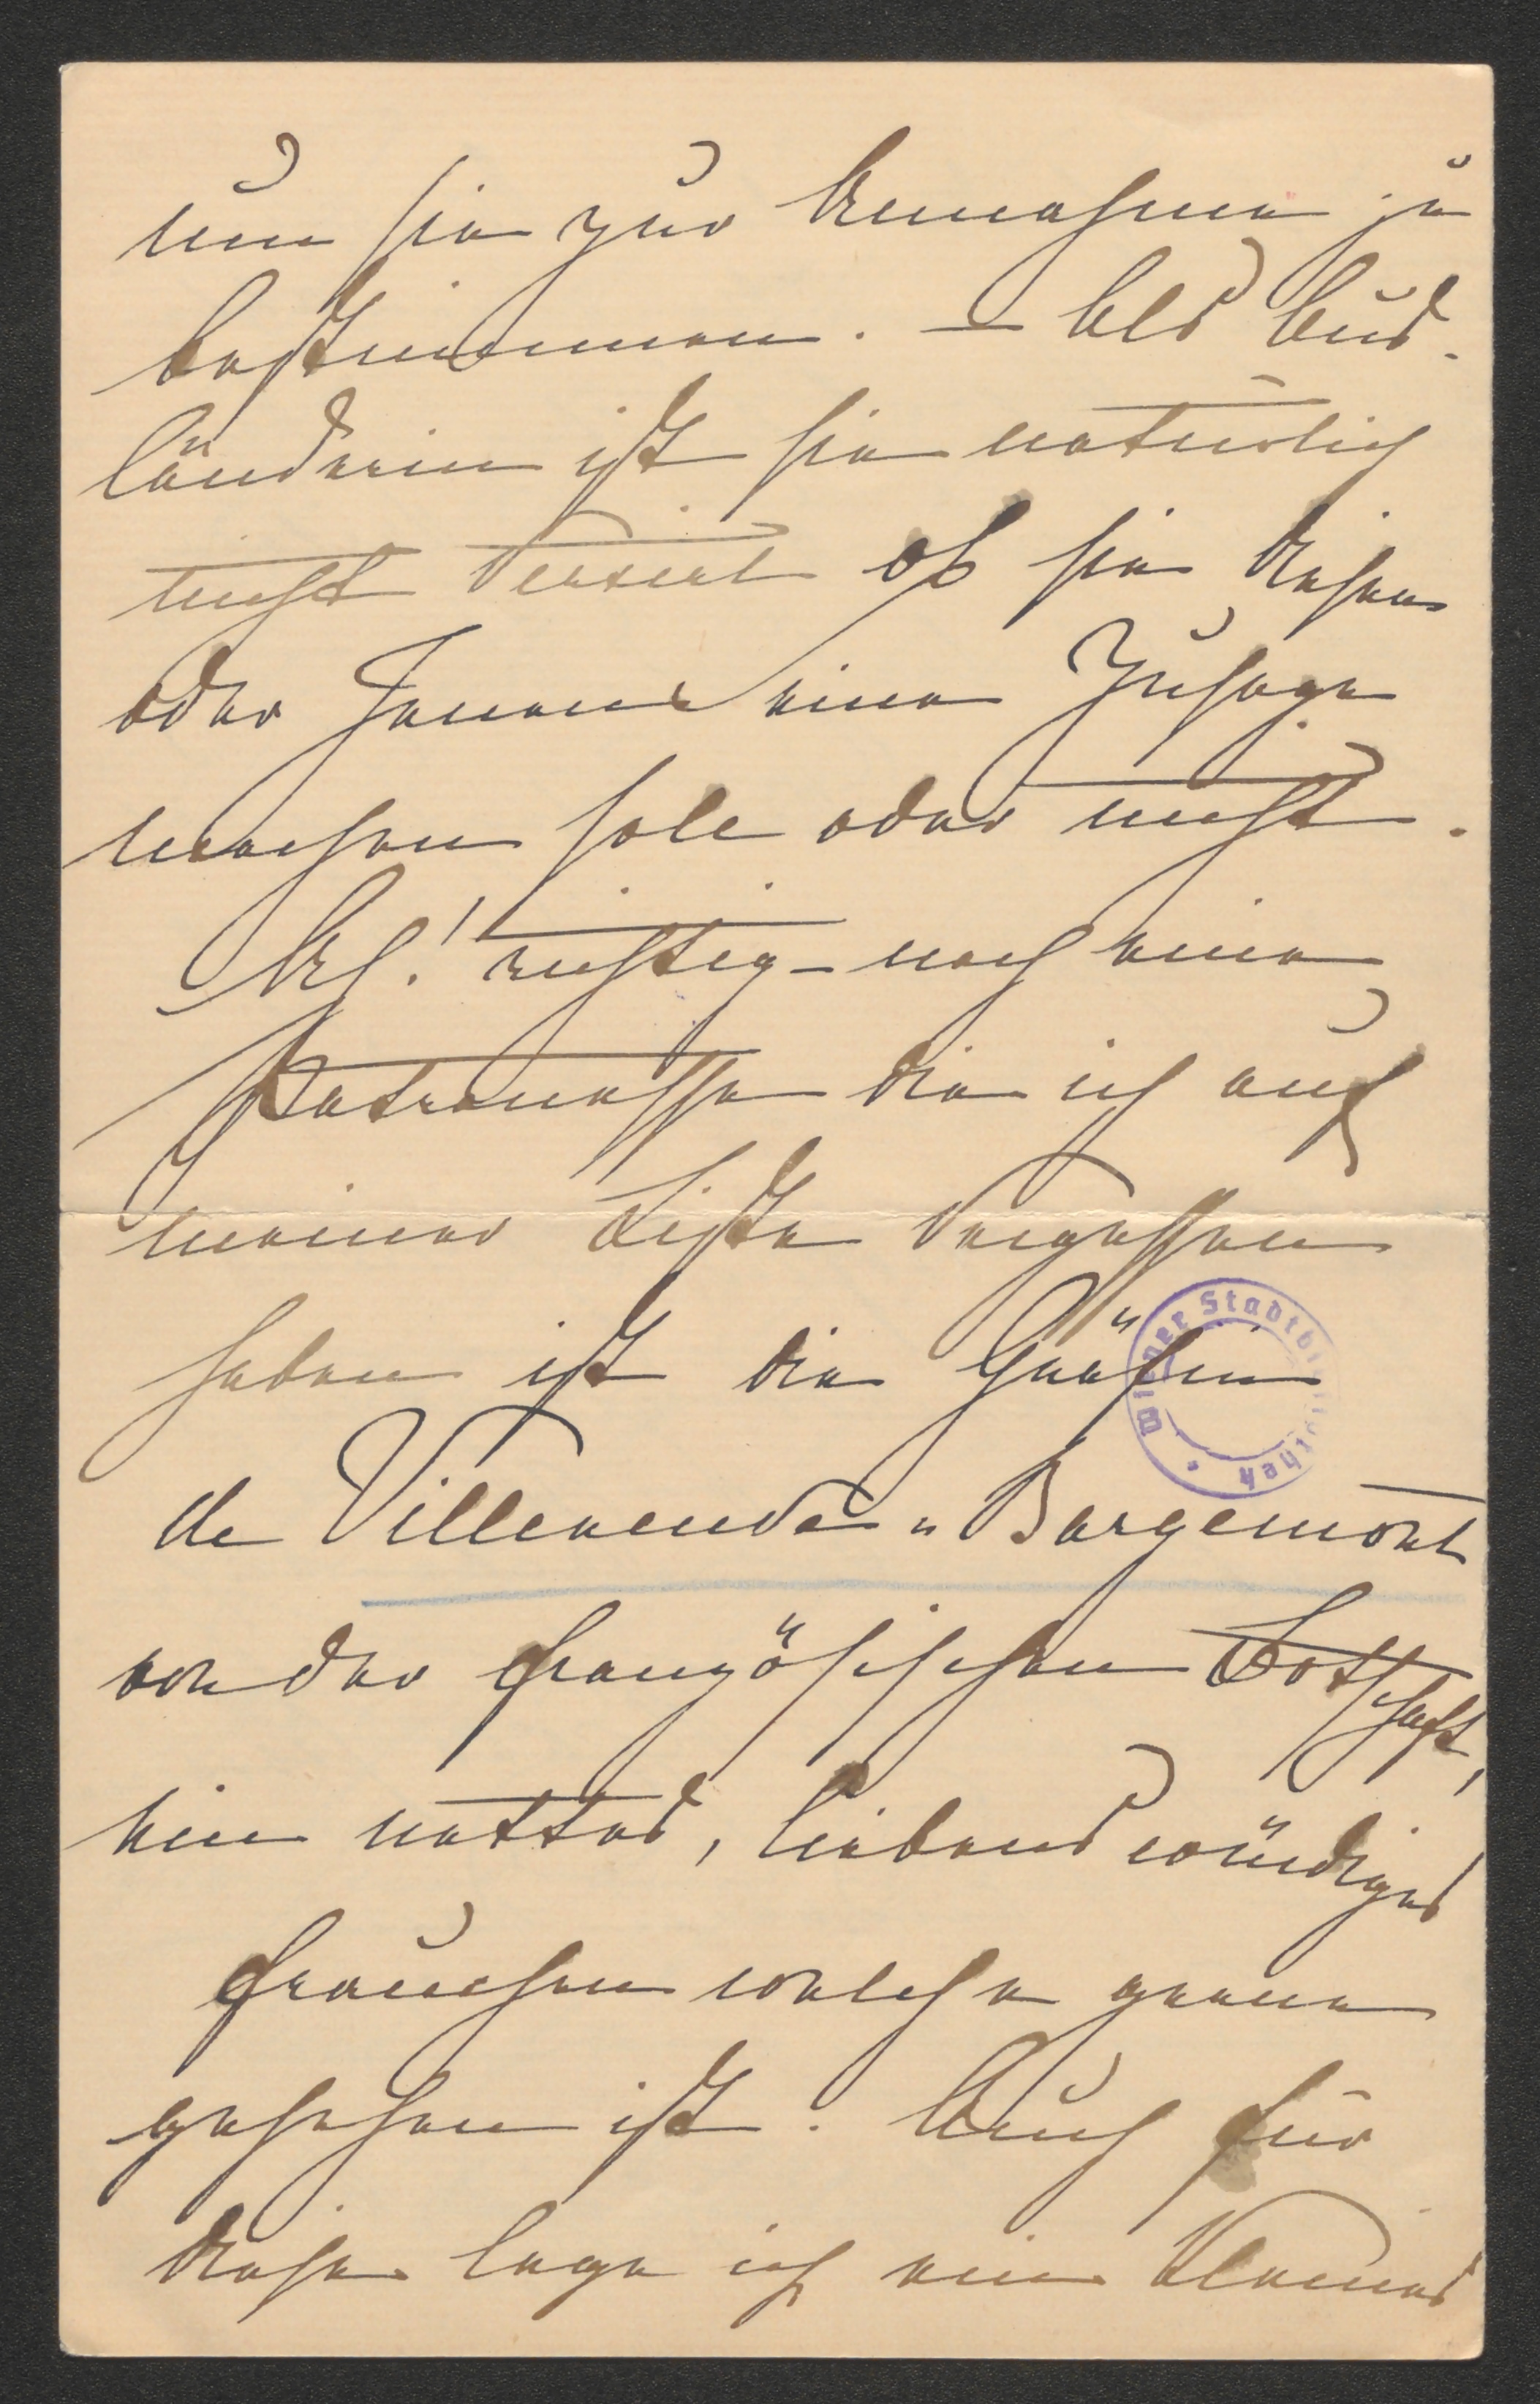 um sie zur Annahme zu
bestimmen. – Als Aus-
länderin ist sie natürlich
nicht versirt ob sie diesen
oder Jenen eine Zusage
machen soll oder nicht.
Ah! richtig – noch eine
Patronesse die ich auf
meiner Liste vergessen
haben ist die Gräfin
de Villeneuve-Bargemont
von der französischen Botschaft,
ein nettes, liebenswürdiges
Frauchen welche gerne
gesehen ist. Auch für
diese lege ich ein kleines
Wiener Stadtbibliothek